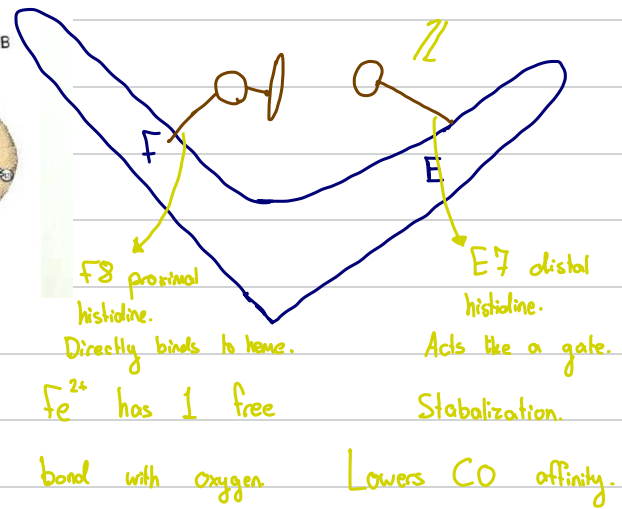 B
F
E
F8 proximal
histidine.
Directly binds to heme.
Fe²⁺ has 1 free
bond with oxygen.
E7 distal
histidine.
Acts like a gate.
Stabalization.
Lowers CO affinity.